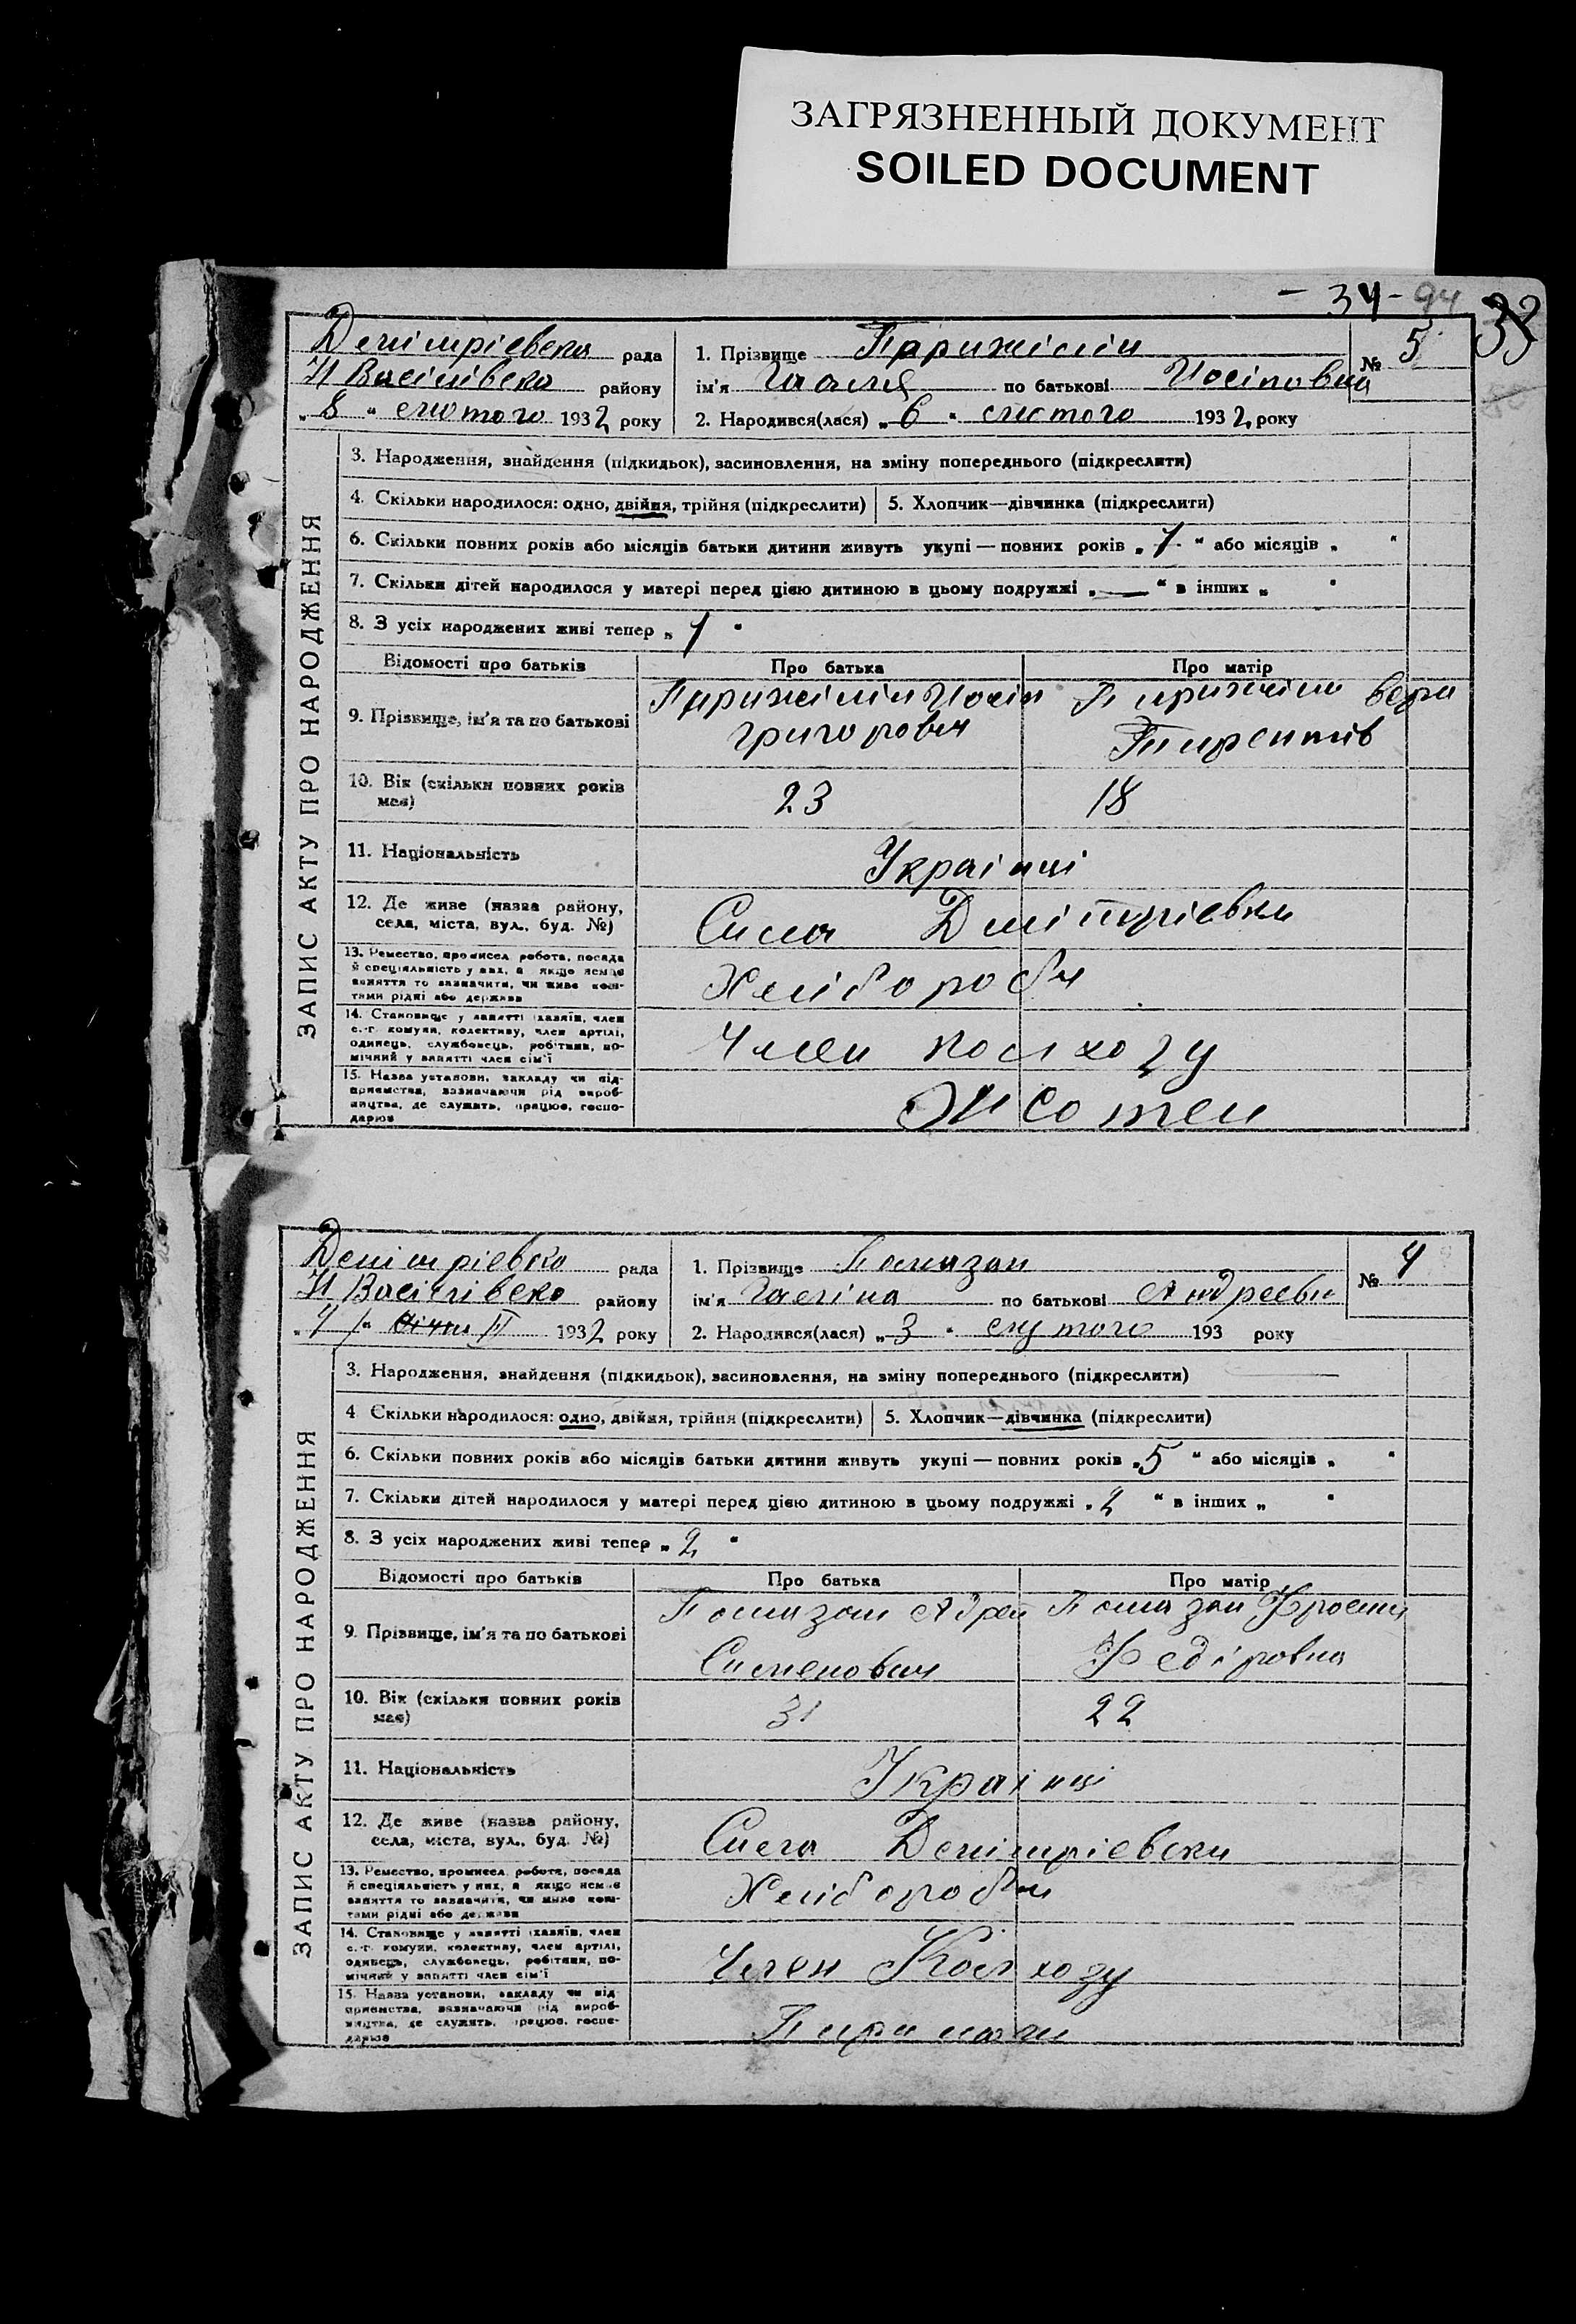 ЗАГРЯЗНЕННЫЙ ДОКУМЕНТ
SOILED DOCUMENT
- 34 - 94 33
рада
1. Прізвище
№ 5
Н Васілівска району
ім'я Галя по батькові Иосіповна
„ 8 “ лютого 1932 року
2. Народився(лася) „ 6 “ лютого 1932 року
ЗАПИС АКТУ ПРО НАРОДЖЕННЯ
3. Народження, знайдення (підкидьок), засиновлення, на зміну попереднього (підкреслити)
4. Скільки народилося: одно, двійня, трійня (підкреслити)
5. Хлопчик—дівчинка (підкреслити)
6. Скільки повних років або місяців батьки дитини живуть укупі — повних років „ 1 “ або місяців „ “
7. Скільки дітей народилося у матері перед цією дитиною в цьому подружжі „ — “ в інших „ “
8. З усіх народжених живі тепер „ 1 “
Відомості про батьків
Про батька
Про матір
9. Прізвище, ім'я та по батькові
Иосіп
Григорович
Вера
10. Вік (скільки повних років має)
23
18
11. Національність
Украінці
12. Де живе (назва району,
села, міста, вул., буд. №)
Село
13. Ремество, промисел, робота, посада
й спеціяльність у них, а якщо немає
заняття то зазначити, чи живе кош-
тами рідні або держави
Хлібороби
14. Становище у занятті (хазяїн, член
с.-г. комуни, колективу, член артілі,
одинець, службовець, робітник, по-
мічний у занятті член сім'ї
Член колхозу
15. Назва установи, закладу чи під-
приємства, зазначаючи рід вироб-
ництва, де служить, працює, госпо-
дарює
Жовтен
рада
1. Прізвище Помазан
№ 4
Н Васілівско району
ім'я Галіна по батькові Андреевн
„ 4 “ січня II 1932 року
2. Народився(лася) „ 3 “ лутого 193 року
ЗАПИС АКТУ ПРО НАРОДЖЕННЯ
3. Народження, знайдення (підкидьок), засиновлення, на зміну попереднього (підкреслити)
4 Скільки народилося: одно, двійня, трійня (підкреслити)
5. Хлопчик—дівчинка (підкреслити)
6. Скільки повних років або місяців батьки дитини живуть укупі — повних років „ 5 “ або місяців „ “
7. Скільки дітей народилося у матері перед цією дитиною в цьому подружжі „ 2 “ в інших „ “
8. З усіх народжених живі тепер „ 2 “
Відомості про батьків
Про батька
Про матір
9. Прізвище, ім'я та по батькові
Помазан Адрей
Семенович
Помазан
Федіровна
10. Вік (скільки повних років має)
31
22
11. Національність
Украінці
12. Де живе (назва району,
села, міста, вул., буд. №)
Села
13. Ремество, промисел, робота, посада
й спеціяльність у них, а якщо немає
заняття то зазначити, чи живе кош-
тами рідні або держави
Хлібороби
14. Становище у занятті (хазяїн, член
с.-г. комуни, колективу, член артілі,
одинець, службовець, робітник, по-
мічний у занятті член сім'ї
Член Колхозу
15. Назва установи, закладу чи під-
приємства, зазначаючи рід вироб-
ництва, де служить, працює, госпо-
дарює